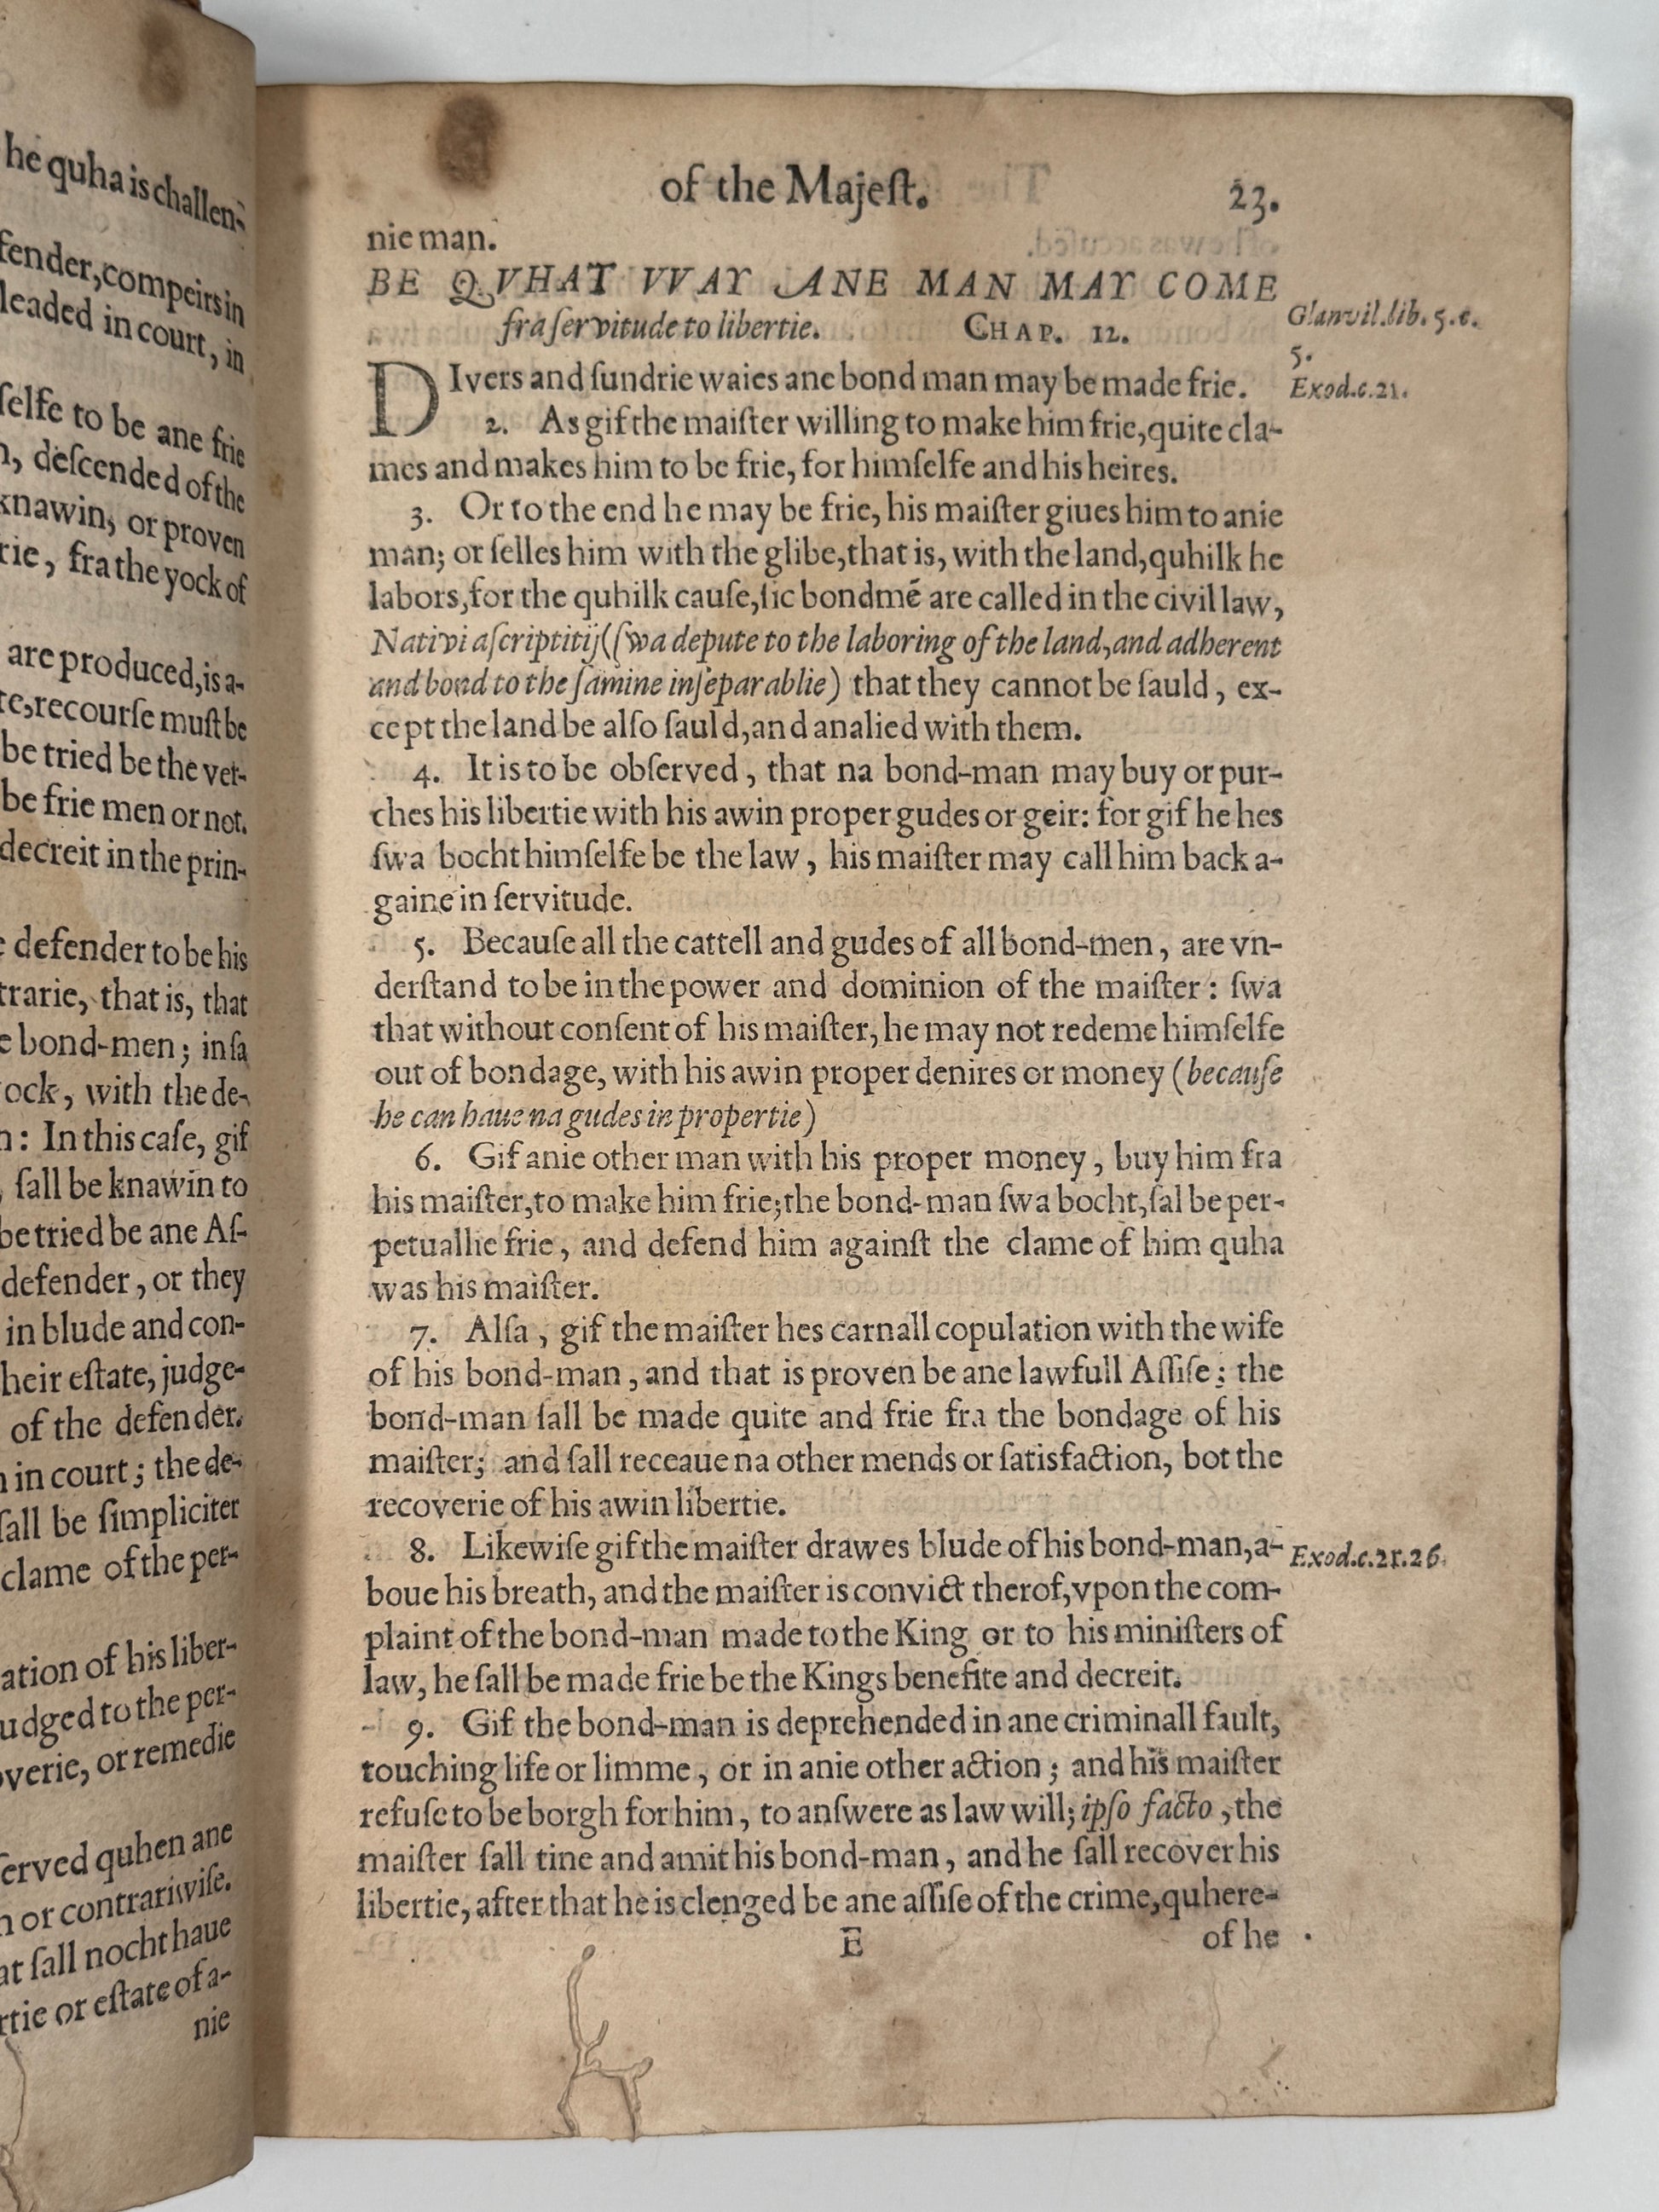 he quha is challen-
fender, compeirs in
leaded in court, in
selfe to be ane frie
descended of the
knawin, or proven
fra the yock of
are produced, is a-
recourse must be
be tried be the ver-
be frie men or not.
decreit in the prin-
defender to be his
that is, that
bond-men; in sa
with the de-
In this case, gif
sall be knawin to
be tried be ane As-
defender, or they
in blude and con-
heir estate, judge-
of the defender.
in court; the de-
sall be simpliciter
clame of the per-
ation of his liber-
udged to the per-
or remedie
served quhen ane
or contrariwise.
sall nocht haue
or estate of a-
nie
of the Majest. 23.
nie man.
BE QVHAT VVAY ANE MAN MAY COME
fra servitude to libertie. CHAP. 12.
Glanvil.lib. 5.c.
5.
Exod.c.21.
DIvers and sundrie waies ane bond man may be made frie.
2. As gif the maister willing to make him frie, quite cla-
mes and makes him to be frie, for himselfe and his heires.
3. Or to the end he may be frie, his maister giues him to anie
man; or selles him with the glibe, that is, with the land, quhilk he
labors, for the quhilk cause, sic bondmē are called in the civil law,
Nativi ascriptitij (swa depute to the laboring of the land, and adherent
and bond to the samine inseparablie) that they cannot be sauld, ex-
cept the land be also sauld, and analied with them.
4. It is to be observed, that na bond-man may buy or pur-
ches his libertie with his awin proper gudes or geir: for gif he hes
swa bocht himselfe be the law, his maister may call him back a-
gaine in servitude.
5. Because all the cattell and gudes of all bond-men, are vn-
derstand to be in the power and dominion of the maister: swa
that without consent of his maister, he may not redeme himselfe
out of bondage, with his awin proper denires or money (because
he can haue na gudes in propertie)
6. Gif anie other man with his proper money, buy him fra
his maister, to make him frie; the bond-man swa bocht, sal be per-
petuallie frie, and defend him against the clame of him quha
was his maister.
7. Alsa, gif the maister hes carnall copulation with the wife
of his bond-man, and that is proven be ane lawfull Assise: the
bond-man sall be made quite and frie fra the bondage of his
maister; and sall receaue na other mends or satisfaction, bot the
recoverie of his awin libertie.
8. Likewise gif the maister drawes blude of his bond-man, a-
Exod.c.21.26.
boue his breath, and the maister is convict therof, vpon the com-
plaint of the bond-man made to the King or to his ministers of
law, he sall be made frie be the Kings benefite and decreit.
9. Gif the bond-man is deprehended in ane criminall fault,
touching life or limme, or in anie other action; and his maister
refuse to be borgh for him, to answere as law will; ipso facto, the
maister sall tine and amit his bond-man, and he sall recover his
libertie, after that he is clenged be ane assise of the crime, quhere-
E of he